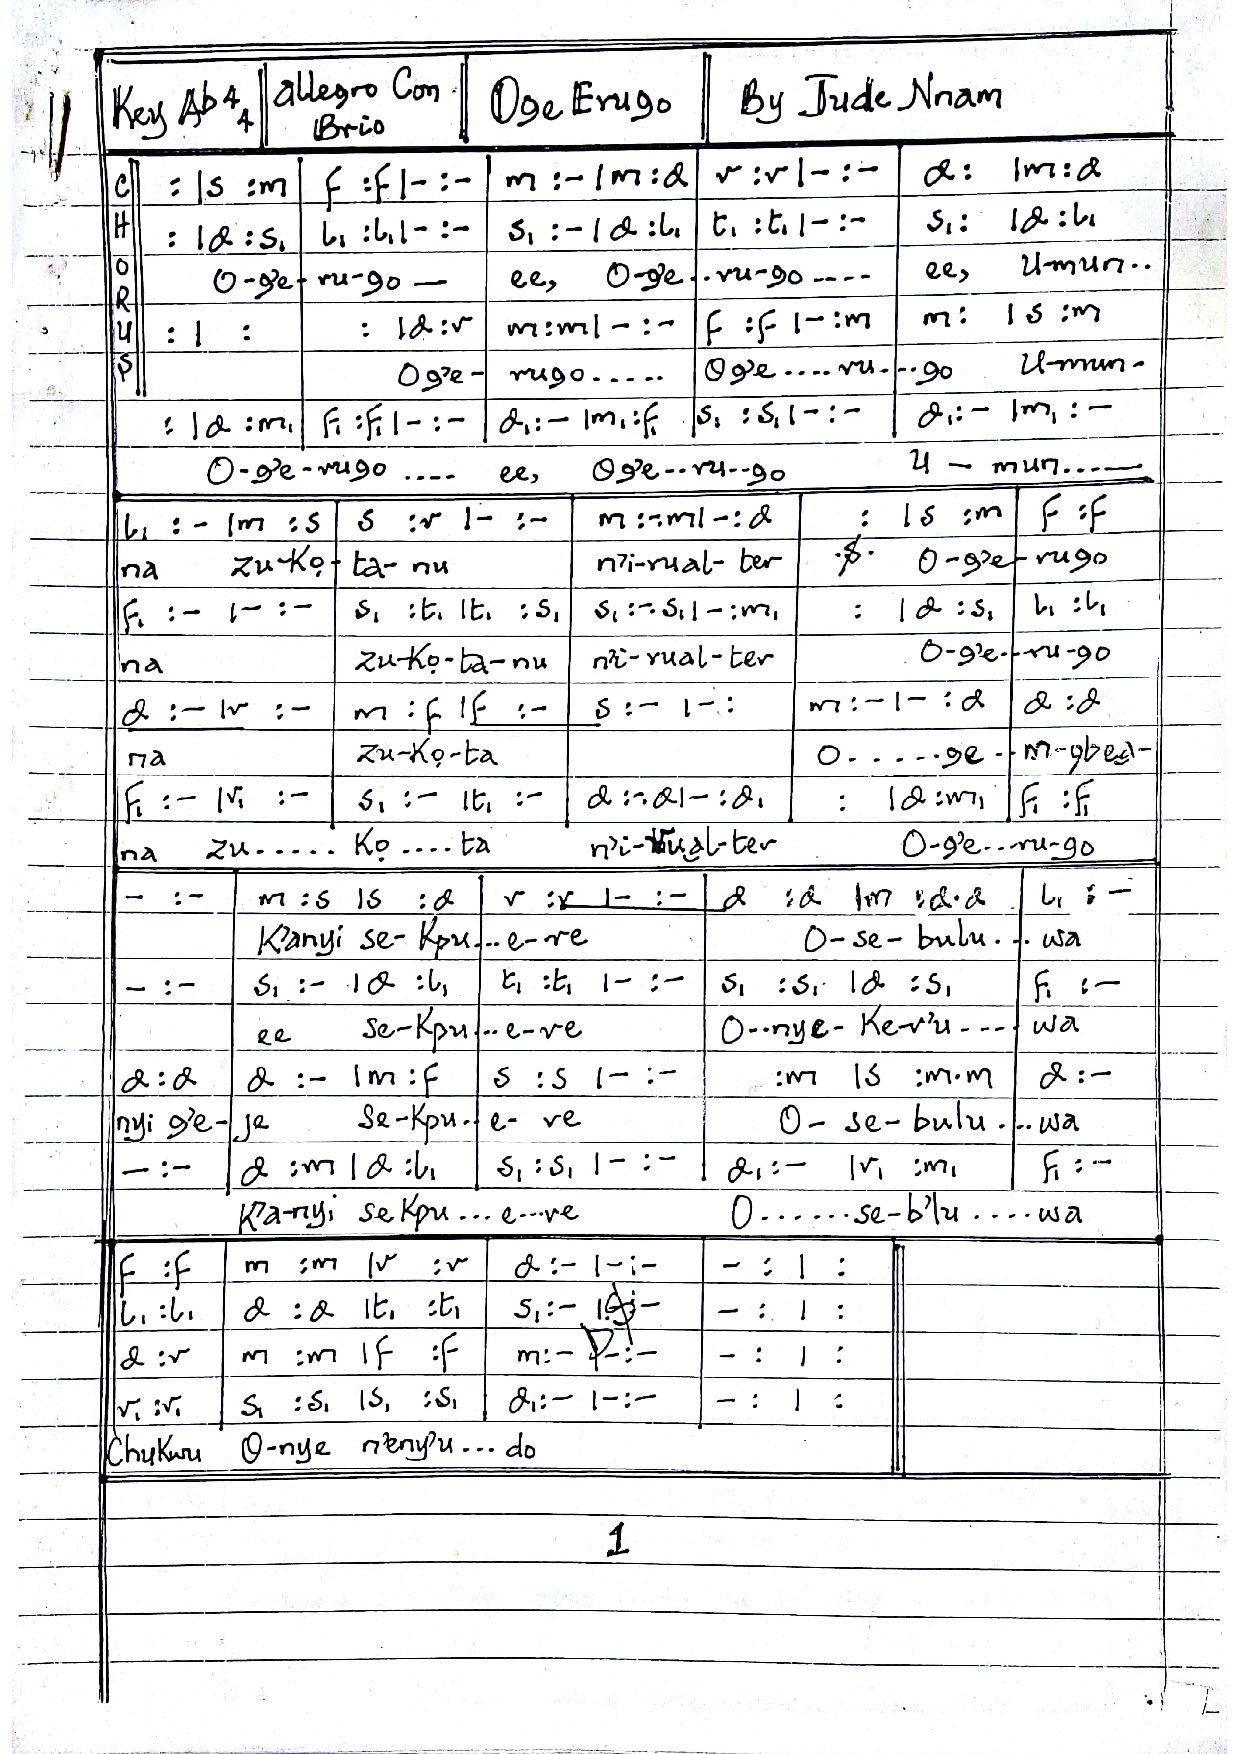 Key Ab 4/4 Allegro Con Brio Oge Erugo By Jude Nnam
CHORUS
: |s :m f :f |- :- m :- |m :d r :r |- :- d : |m :d
: |d :s₁ l₁ :l₁ |- :- s₁ :- |d :l₁ t₁ :t₁ |- :- s₁ : |d :l₁
O-g'e-ru-go — ee, O-g'e..ru-go .... ee, U-mun..
: | : : |d :r m :m |- :- f :f |- :m m : |s :m
Og'e- rugo ..... Og'e ....ru...go U-mun-
: |d :m₁ f₁ :f₁ |- :- d₁ :- |m₁ :f₁ s₁ :s₁ |- :- d₁ :- |m₁ :-
O-g'e-rugo .... ee, Og'e..ru..go U - mun......
l₁ :- |m :s s :r |- :- m :-.m |- :d : |s :m f :f
na zu-kọ-ta-nu n'i-rual-ter .S. O-g'e-rugo
f₁ :- |- :- s₁ :t₁ |t₁ :s₁ s₁ :-.s₁ |- :m₁ : |d :s₁ l₁ :l₁
na zu-kọ-ta-nu n'i-rual-ter O-g'e-ru-go
d :- |r :- m :f |f :- s :- |- : m :- |- :d d :d
na zu-kọ-ta O......ge-m-gbea-
f₁ :- |r₁ :- s₁ :- |t₁ :- d :-.d |- :d₁ : |d :m₁ f₁ :f₁
na zu...... kọ ....ta n'i-rual-ter O-g'e...ru-go
- :- m :s |s :d r :r |- :- d :d |m :d.d l₁ :-
K'anyi se-kpu...e-re O-se-bulu...wa
- :- s₁ :- |d :l₁ t₁ :t₁ |- :- s₁ :s₁ |d :s₁ f₁ :-
ee se-kpu...e-re O--nye-ker'u ....wa
d :d d :- |m :f s :s |- :- :m |s :m.m d :-
nyi g'e-je se-kpu..e-re O-se-bulu...wa
- :- d :m |d :l₁ s₁ :s₁ |- :- d₁ :- |r₁ :m₁ f₁ :-
K'a-nyi sekpu...e...re O......se-b'lu ....wa
f :f m :m |r :r d :- |- :- - : | :
l₁ :l₁ d :d |t₁ :t₁ s₁ :- |- :- - : | :
d :r m :m |f :f m :- |- :- - : | :
r₁ :r₁ s₁ :s₁ |s₁ :s₁ d₁ :- |- :- - : | :
Chukwu O-nye n'eny'u...do
1